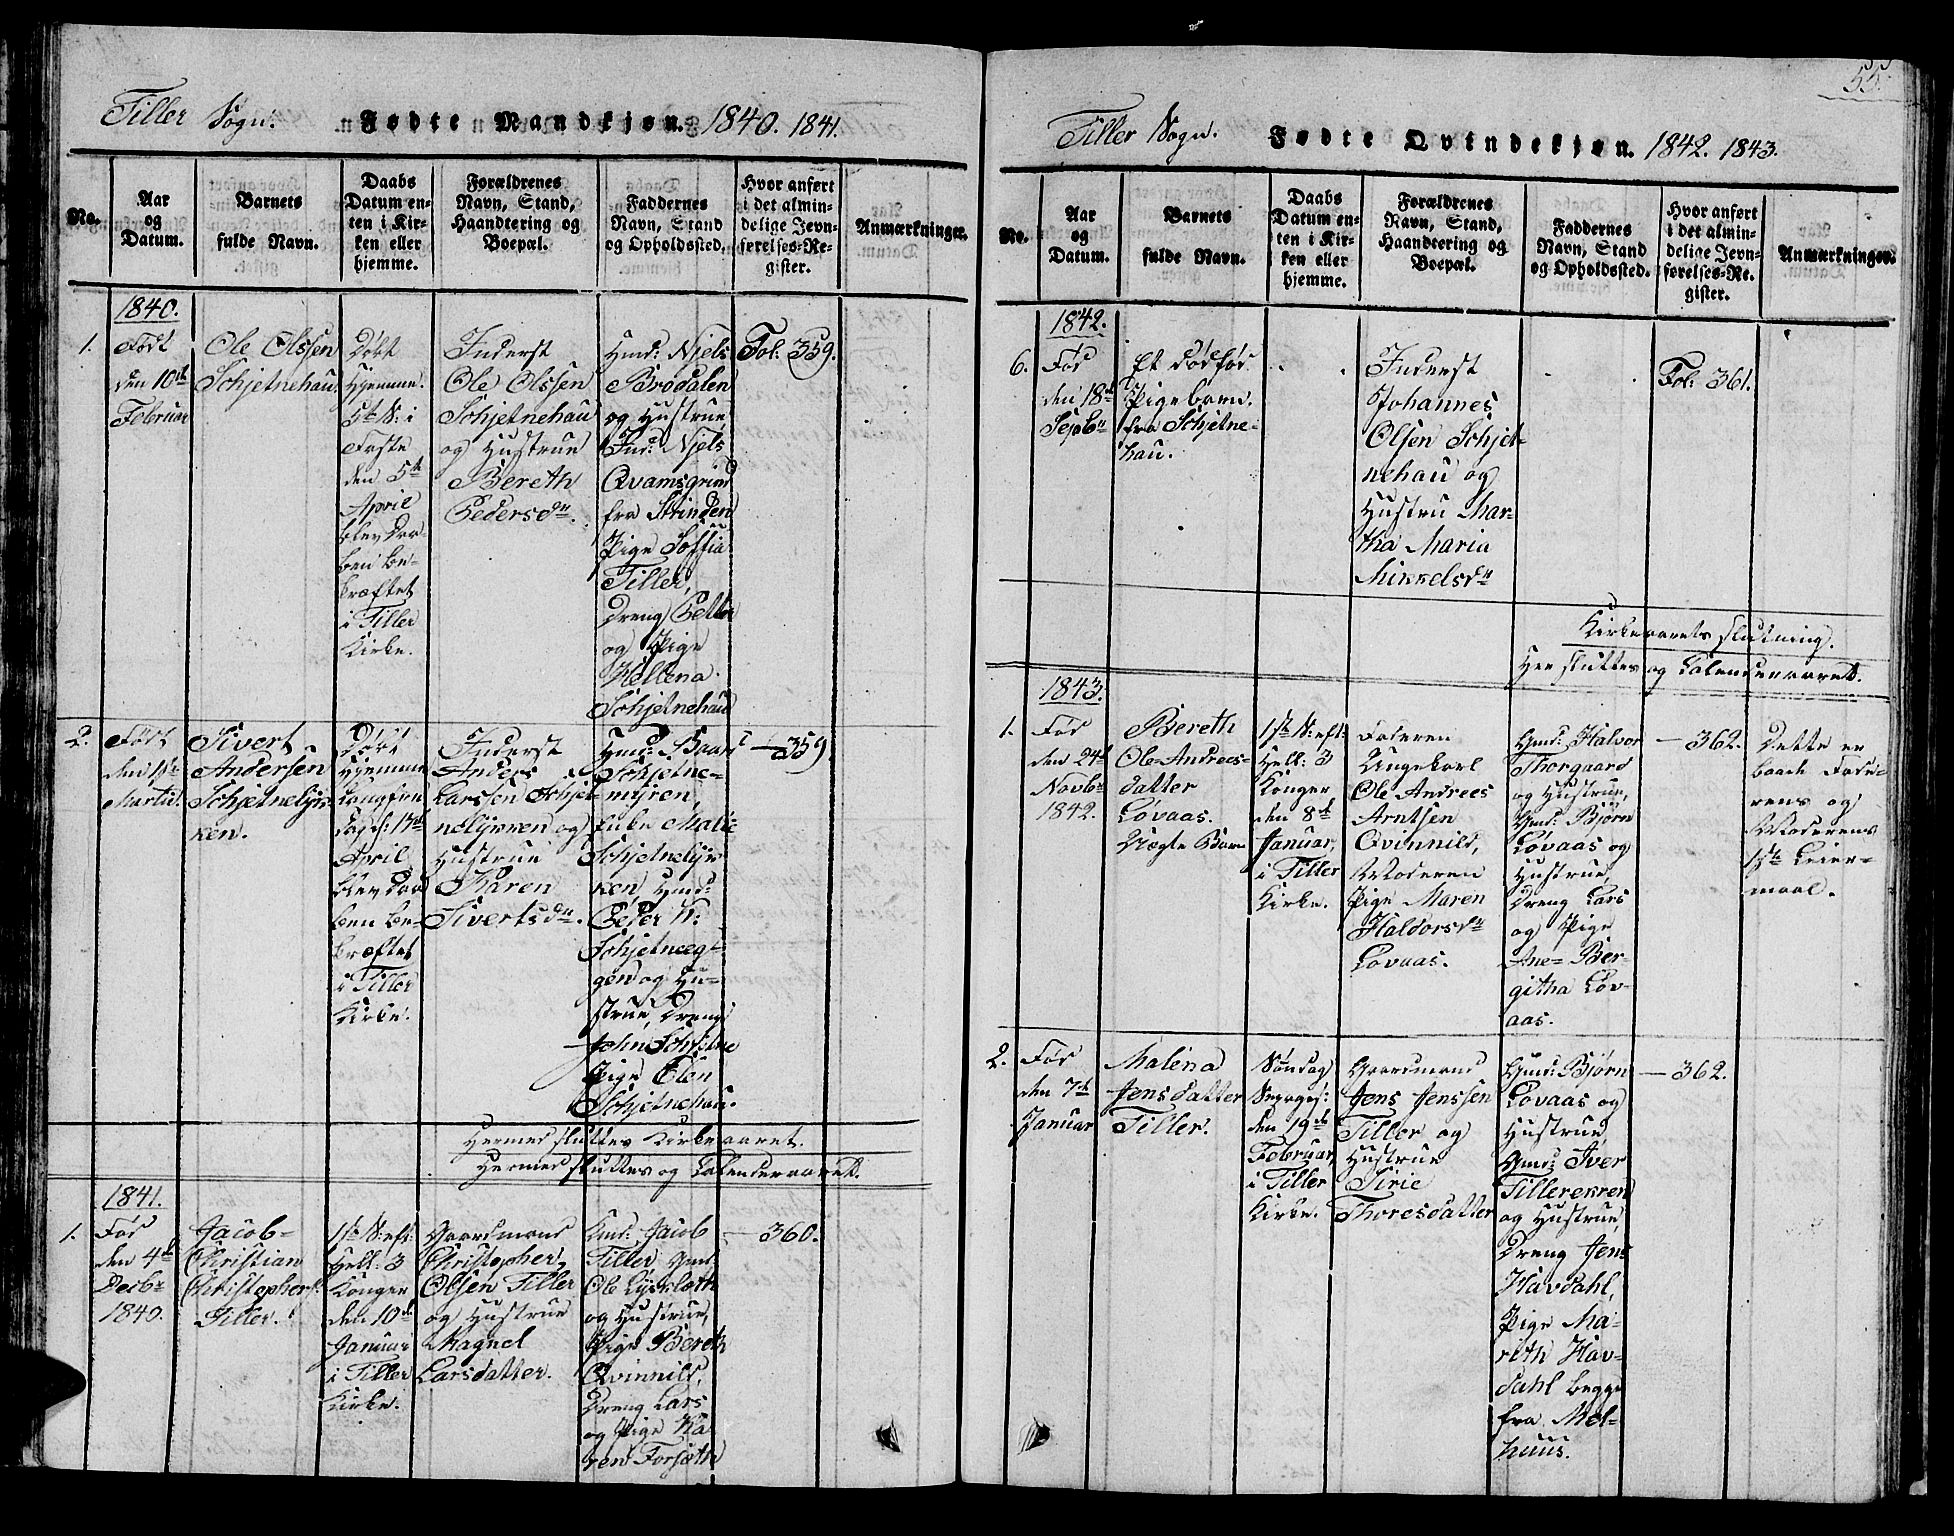 Tiller Sogn. Fødte Mandkjøn. 1840. 1841.
No.
Aar
og
Datum.
Barnets
fulde Navn.
Daabs
Datum en-
ten i Kir-
ken eller
hjemme.
Forældrenes
Navn, Stand,
Haandtering og
Boepæl.
Faddernes
Navn, Stand
og Opholdssted.
Hvor anført
i det almin-
delige Jevn-
førelses-Re-
gister.
Anmærkninger.
1840.
1.
Født
den 10de
Februar
Ole Olssen
Schjetnehau
Døbt
Hjemme.
5te S: i
Faste
den 5te
April
blev Daa-
ben be-
kræftet
i Tiller
Kirke.
Inderst
Ole Olssen
Schjetnehau
og Hustrue
Bereth
Pedersdr.
Gmd: Njels
Brødalen
og Hustrue
Ind: Njels
Qvamsgrind
fra Strinden
Pige Soffia
Tiller,
Dreng Petter
og Pige
Hellena
Schjetnehau
Fol: 359.
2.
Født
den 1ste
Martii.
Sivert
Andersen
Schjetnelyk-
ken.
Døbt
Hjemme
Langfre-
dag d: 17de
April
blev Daa
ben be-
kræftet
i Tiller
Kirke.
Inderst
Anders
Larssen Schjet-
nelykken og
Hustrue
Karen
Sivertsdr.
Hmd: Baard
Schjetne-
myren,
Enke Malie
Schjetnelyk
ken, Hmd:
Peter H:
Schjetneeg-
gen og Hu-
strue, Dreng
John Schjetne
Pige Elen
Schjetnehau.
— 359
Hermed sluttes Kirkeaaret.
Hermed sluttes og Calenderaaret.
1841.
1.
Fød
den 4de
Decbr
1840.
Jacob-
Christian
Christophers:
Tiller.
1ste S: eft:
Hell: 3
Konger
den 10de
Januar
i Tiller
Kirke.
Gaardmand
Christopher
Olsen Tiller
og Hustrue
Magnel
Larsdatter.
Gmd: Jacob
Tiller Gmd:
Ole Lysklæth
og Hustrue,
Pige Bereth
Qvinnild,
Dreng Lars
og Pige Ka
ren Forsæth
— 360.
55.
Tiller Sogn. Fødte Qvindekjøn. 1842. 1843.
No.
Aar
og
Datum.
Barnets
fulde Navn.
Daabs
Datum en-
ten i Kir-
ken eller
hjemme.
Forældrenes
Navn, Stand,
Haandtering og
Boepæl.
Faddernes
Navn, Stand
og Opholdssted.
Hvor anført
i det almin-
delige Jevn-
førelses-Re-
gister.
Anmærkninger.
1842.
6.
Fød
den 18de
Septbr
Et dødfød
Pigebarn.
fra Schjetne-
hau.
Inderst
Johannes
Olsen Schjet-
nehau og
Hustru Mar-
tha Maria
Mikkelsdr
Fol: 361.
Kirkeaarets slutning.
Her sluttes og Calenderaaret.
1843.
1.
Fød
den 24de
Novbr
1842.
Bereth
Ole-Andreas-
datter
Løvaas.
Uægte Barn
1ste S: eft:
Hell: 3
Konger
den 8de
Januar,
i Tiller
Kirke.
Faderen
Ungekarl
Ole Andreas
Arntsen
Qvinnild,
Moderen
Pige Maren
Haldorsdr
Løvaas.
Gmd: Halvor
Thorgaard
og Hustrue,
Gmd: Bjørn
Løvaas og
Hustrue,
Dreng Lars
og Pige
Ane- Ber-
githa Løv-
aas.
— 362.
Dette er
baade Fade-
rens og
Moderens
1ste Leier-
maal.
2.
Fød
den 7de
Januar
Malena
Jensdatter
Tiller.
Søndag
Sexages:
den 19de
Februar,
i Tiller
Kirke.
Gaardmand
Jens Jenssen
Tiller og
Hustrue
Sirie
Thoresdatter
Gmd: Bjørn
Løvaas og
Hustrue,
Gmd: Iver
Tillerekren
og Hustrue
Dreng Jens
Havdahl,
Pige Ma-
rith Hav-
dahl begge
fra Mel-
huus.
— 362.